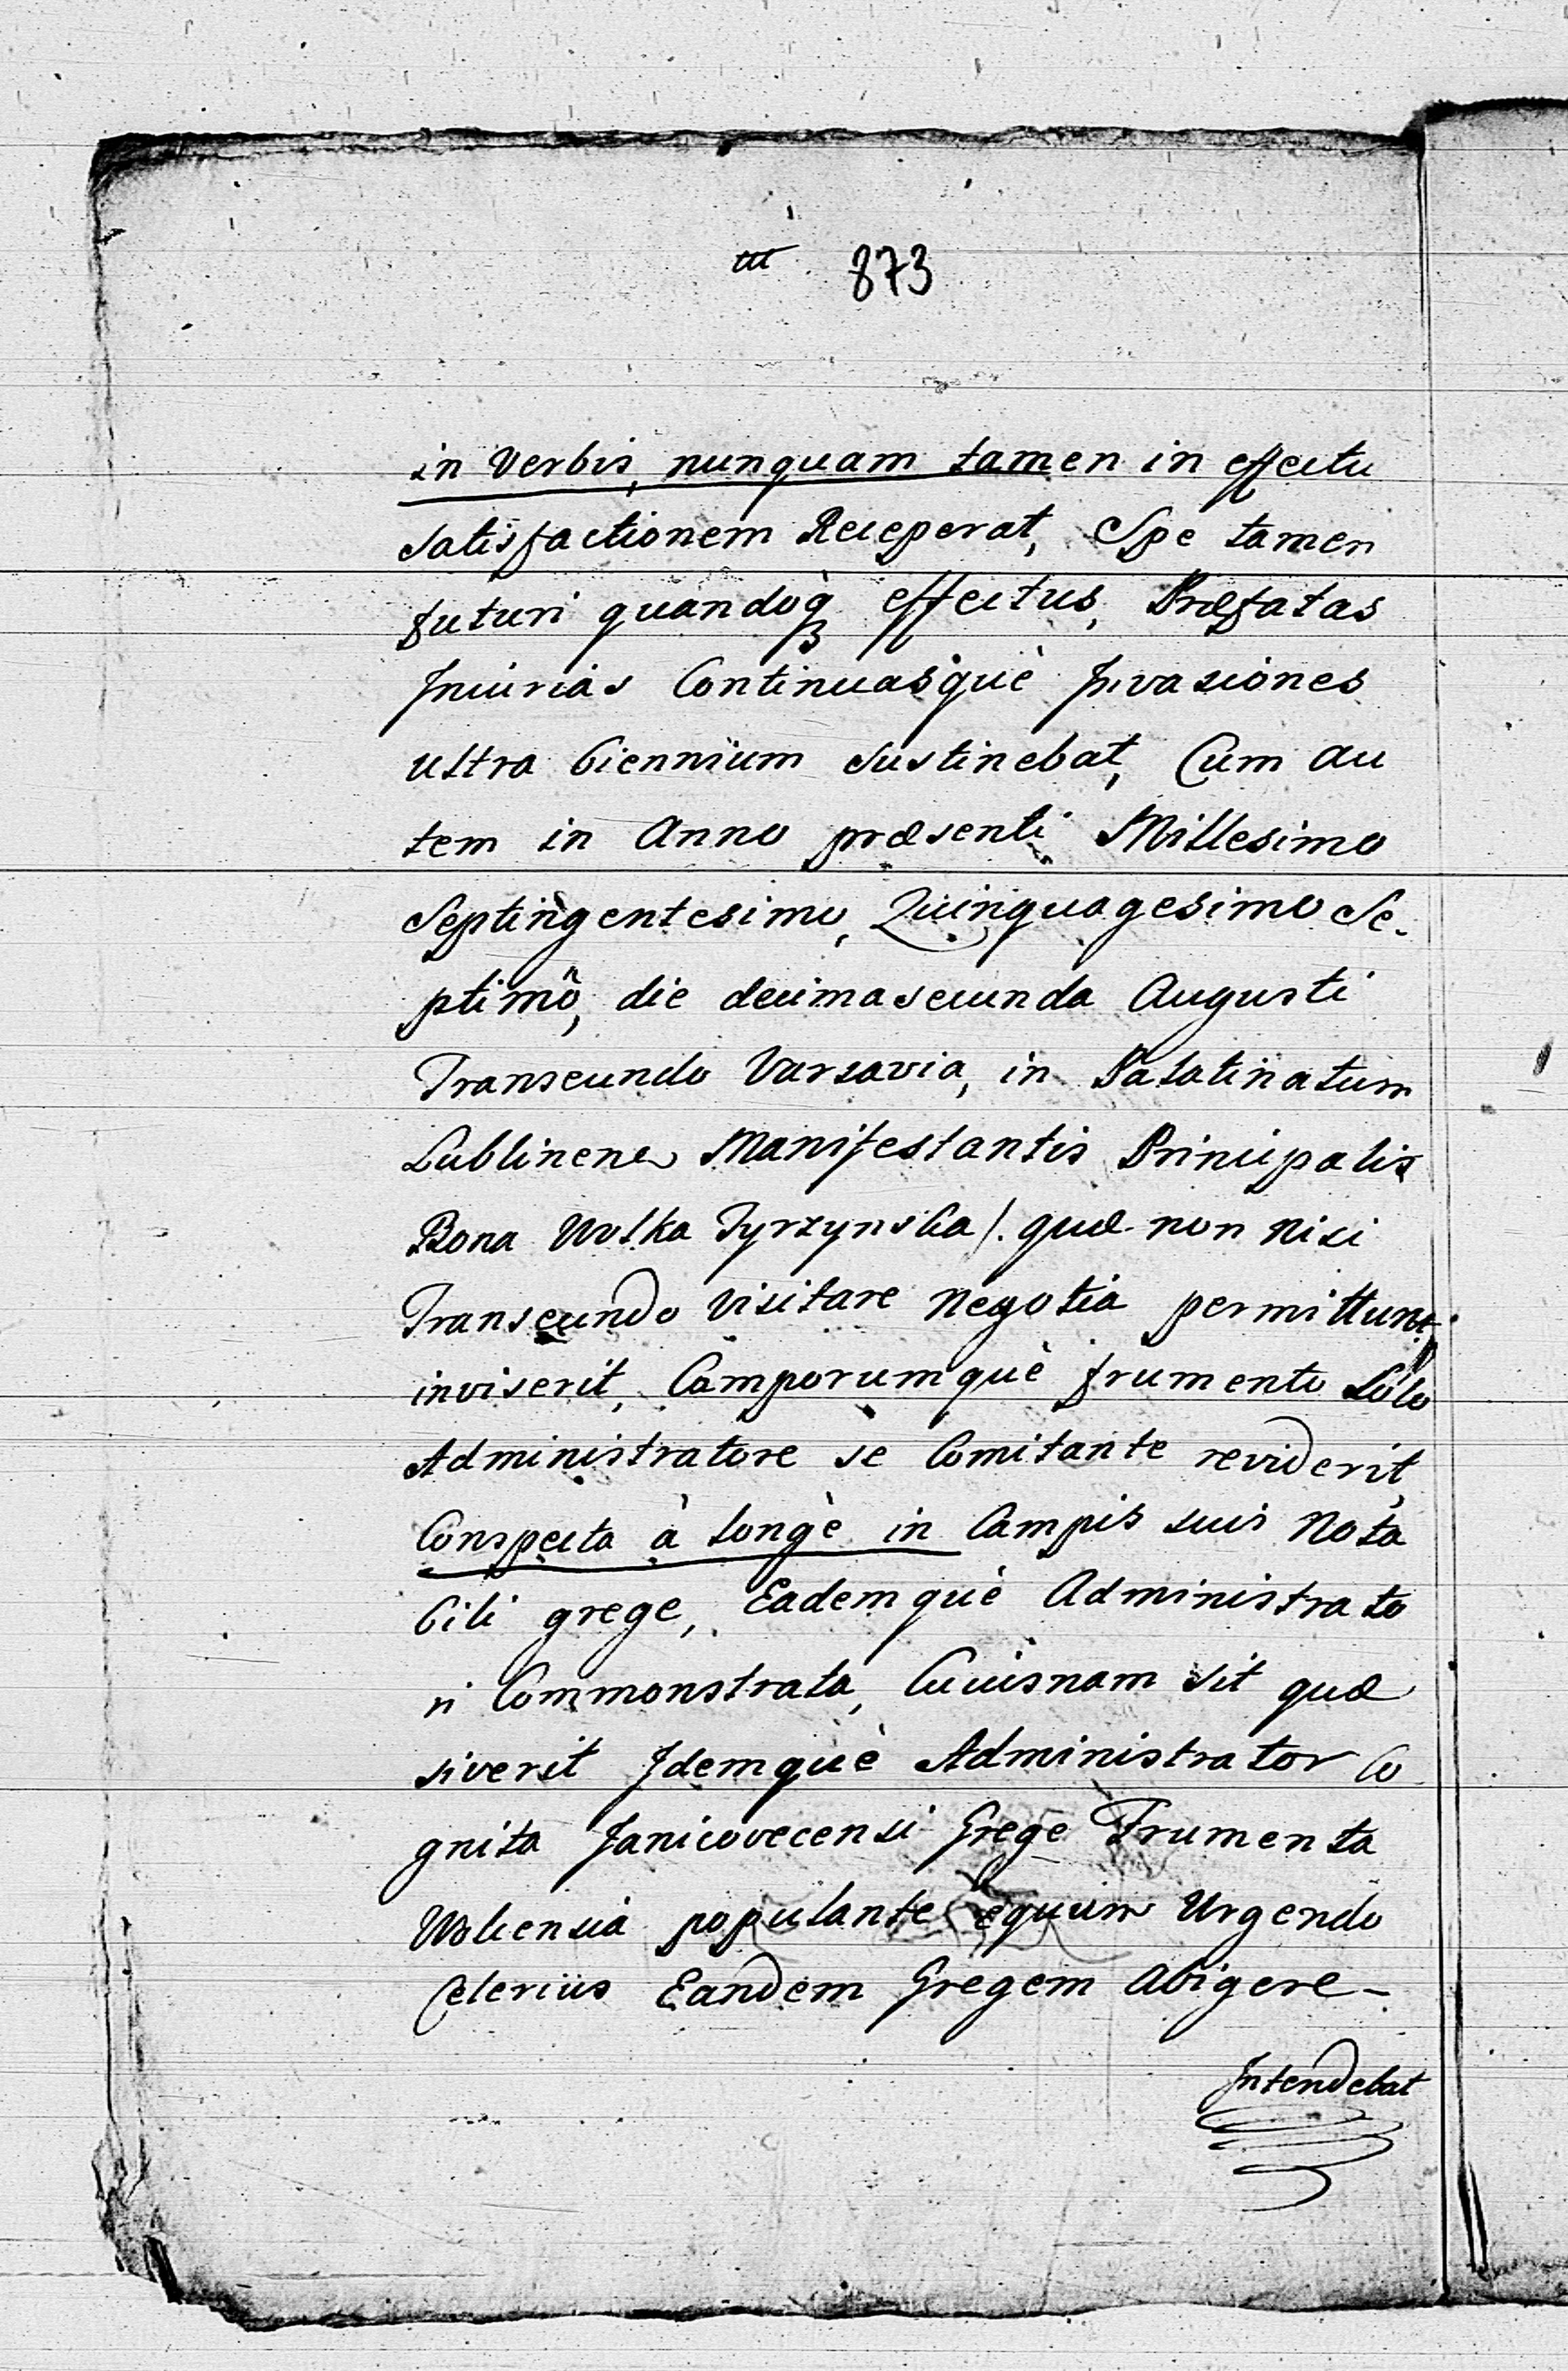 873
in Verbis, nunquam tamen in effectu
satisfactionem Receperat, Spe tamen
futuri quandoqꝫ effectus, Præfatas
Iniurias Continuasquè Invasiones
ultra biennium sustinebat, Cum au
tem in Anno præsenti Millesimo
Septingentesimo, Quinquagesimo Se-
ptimô, die decima secunda Augusti
Transeundo Varsavia, in Palatinatum
Lublinens Manifestantis Principalis
Bona Wolka Tyrzynska /. quæ non nisi
Transeundo visitare negotia permittunt
inviserit, Camporumquè frumento solo
Administratore se Comitante reviderit,
Conspecta à longè in Campis suis Nota
bili grege, Eademquè Administrato
ri Commonstrata, Cuiusnam sit quæ
siverit Idemquè Administrator Co
gnita Janicovecensi Grege Frumenta
Wolcensia populante equum Urgendo
Celerius Eandem Gregem abigere-
Intendebat